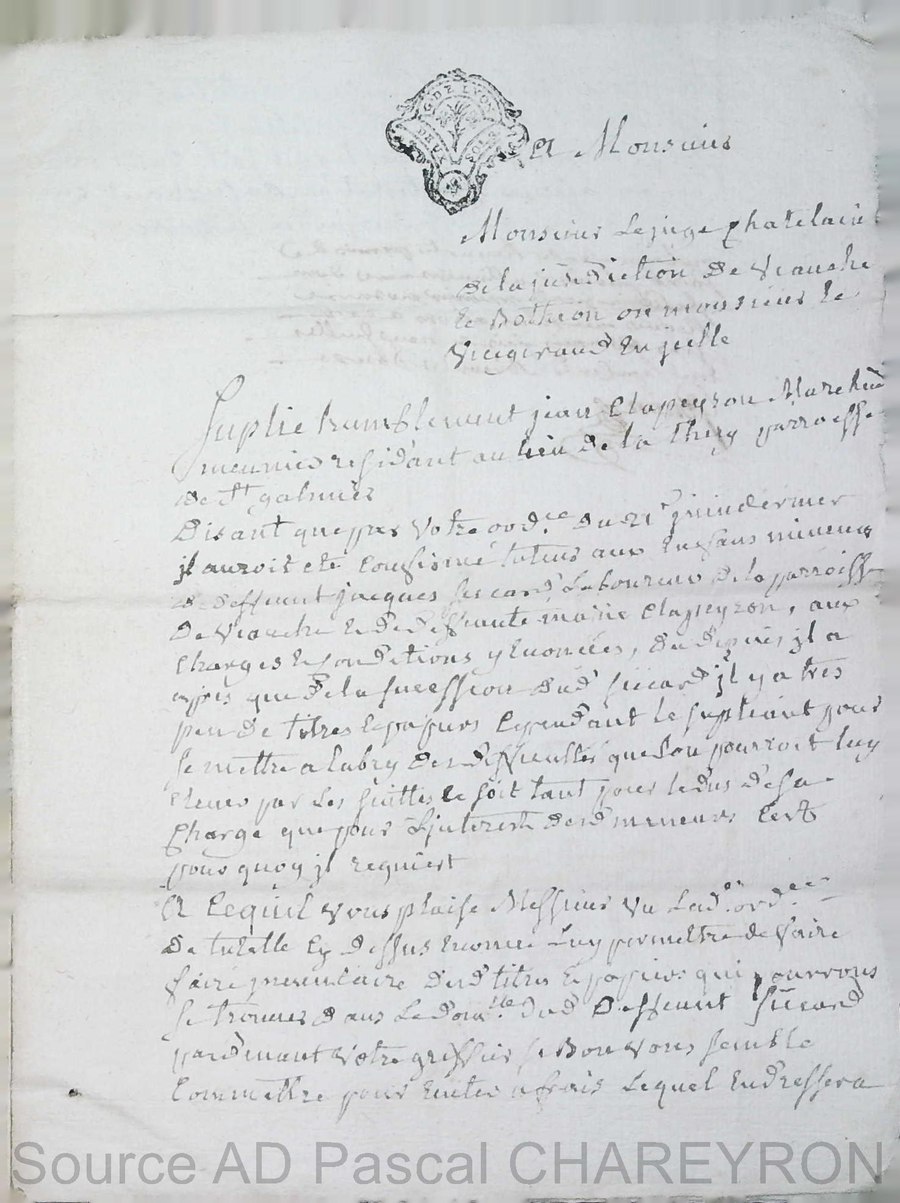 G DE LYON
DEUX SOLS
A Monsieur
Monsieur Le juge Chatelain
de la jurisdiction de veauche
le Botheon ou monsieur le
Vicegerand En jcelle
Suplie humblement jean Clapeyron Marchand
meunier residant au lieu de la Thiery parroesse
de St galmier
Disant que par Votre ordce du 21e juin dermer
jl auroit eté Confirmé tuteur aux Enfans mineurs
de deffunt jacques Siccard Laboureur de la parroisse
De veauche & de deffunte marie Clapeyron, aux
Charges & Conditions y Enoncées, du depuis jl a
apris que de la sucession dud Siccard jl y a tres
peu de titres & papiers Cependant le supliant pour
se mettre a Labry des difficultés que Lon pourroit luy
Elever par les suittes & soit tant pour le dus de sa
Charge que pour Ljnterest desd mineurs Cest
pour quoy jl requiert
A Cequil vous plaise Messieurs Vu Lade ordce
De tutelle Cy dessus Enoncée Luy permettre de faire
faire jnventaire desd titres & papiers qui pourrons
se trouver dans Le domlle dud Deffunt Siccard
pardevant Votre greffier si Bon vous semble
Commettre pour Eviter a frais Lequel En dressera
Source AD Pascal CHAREYRON